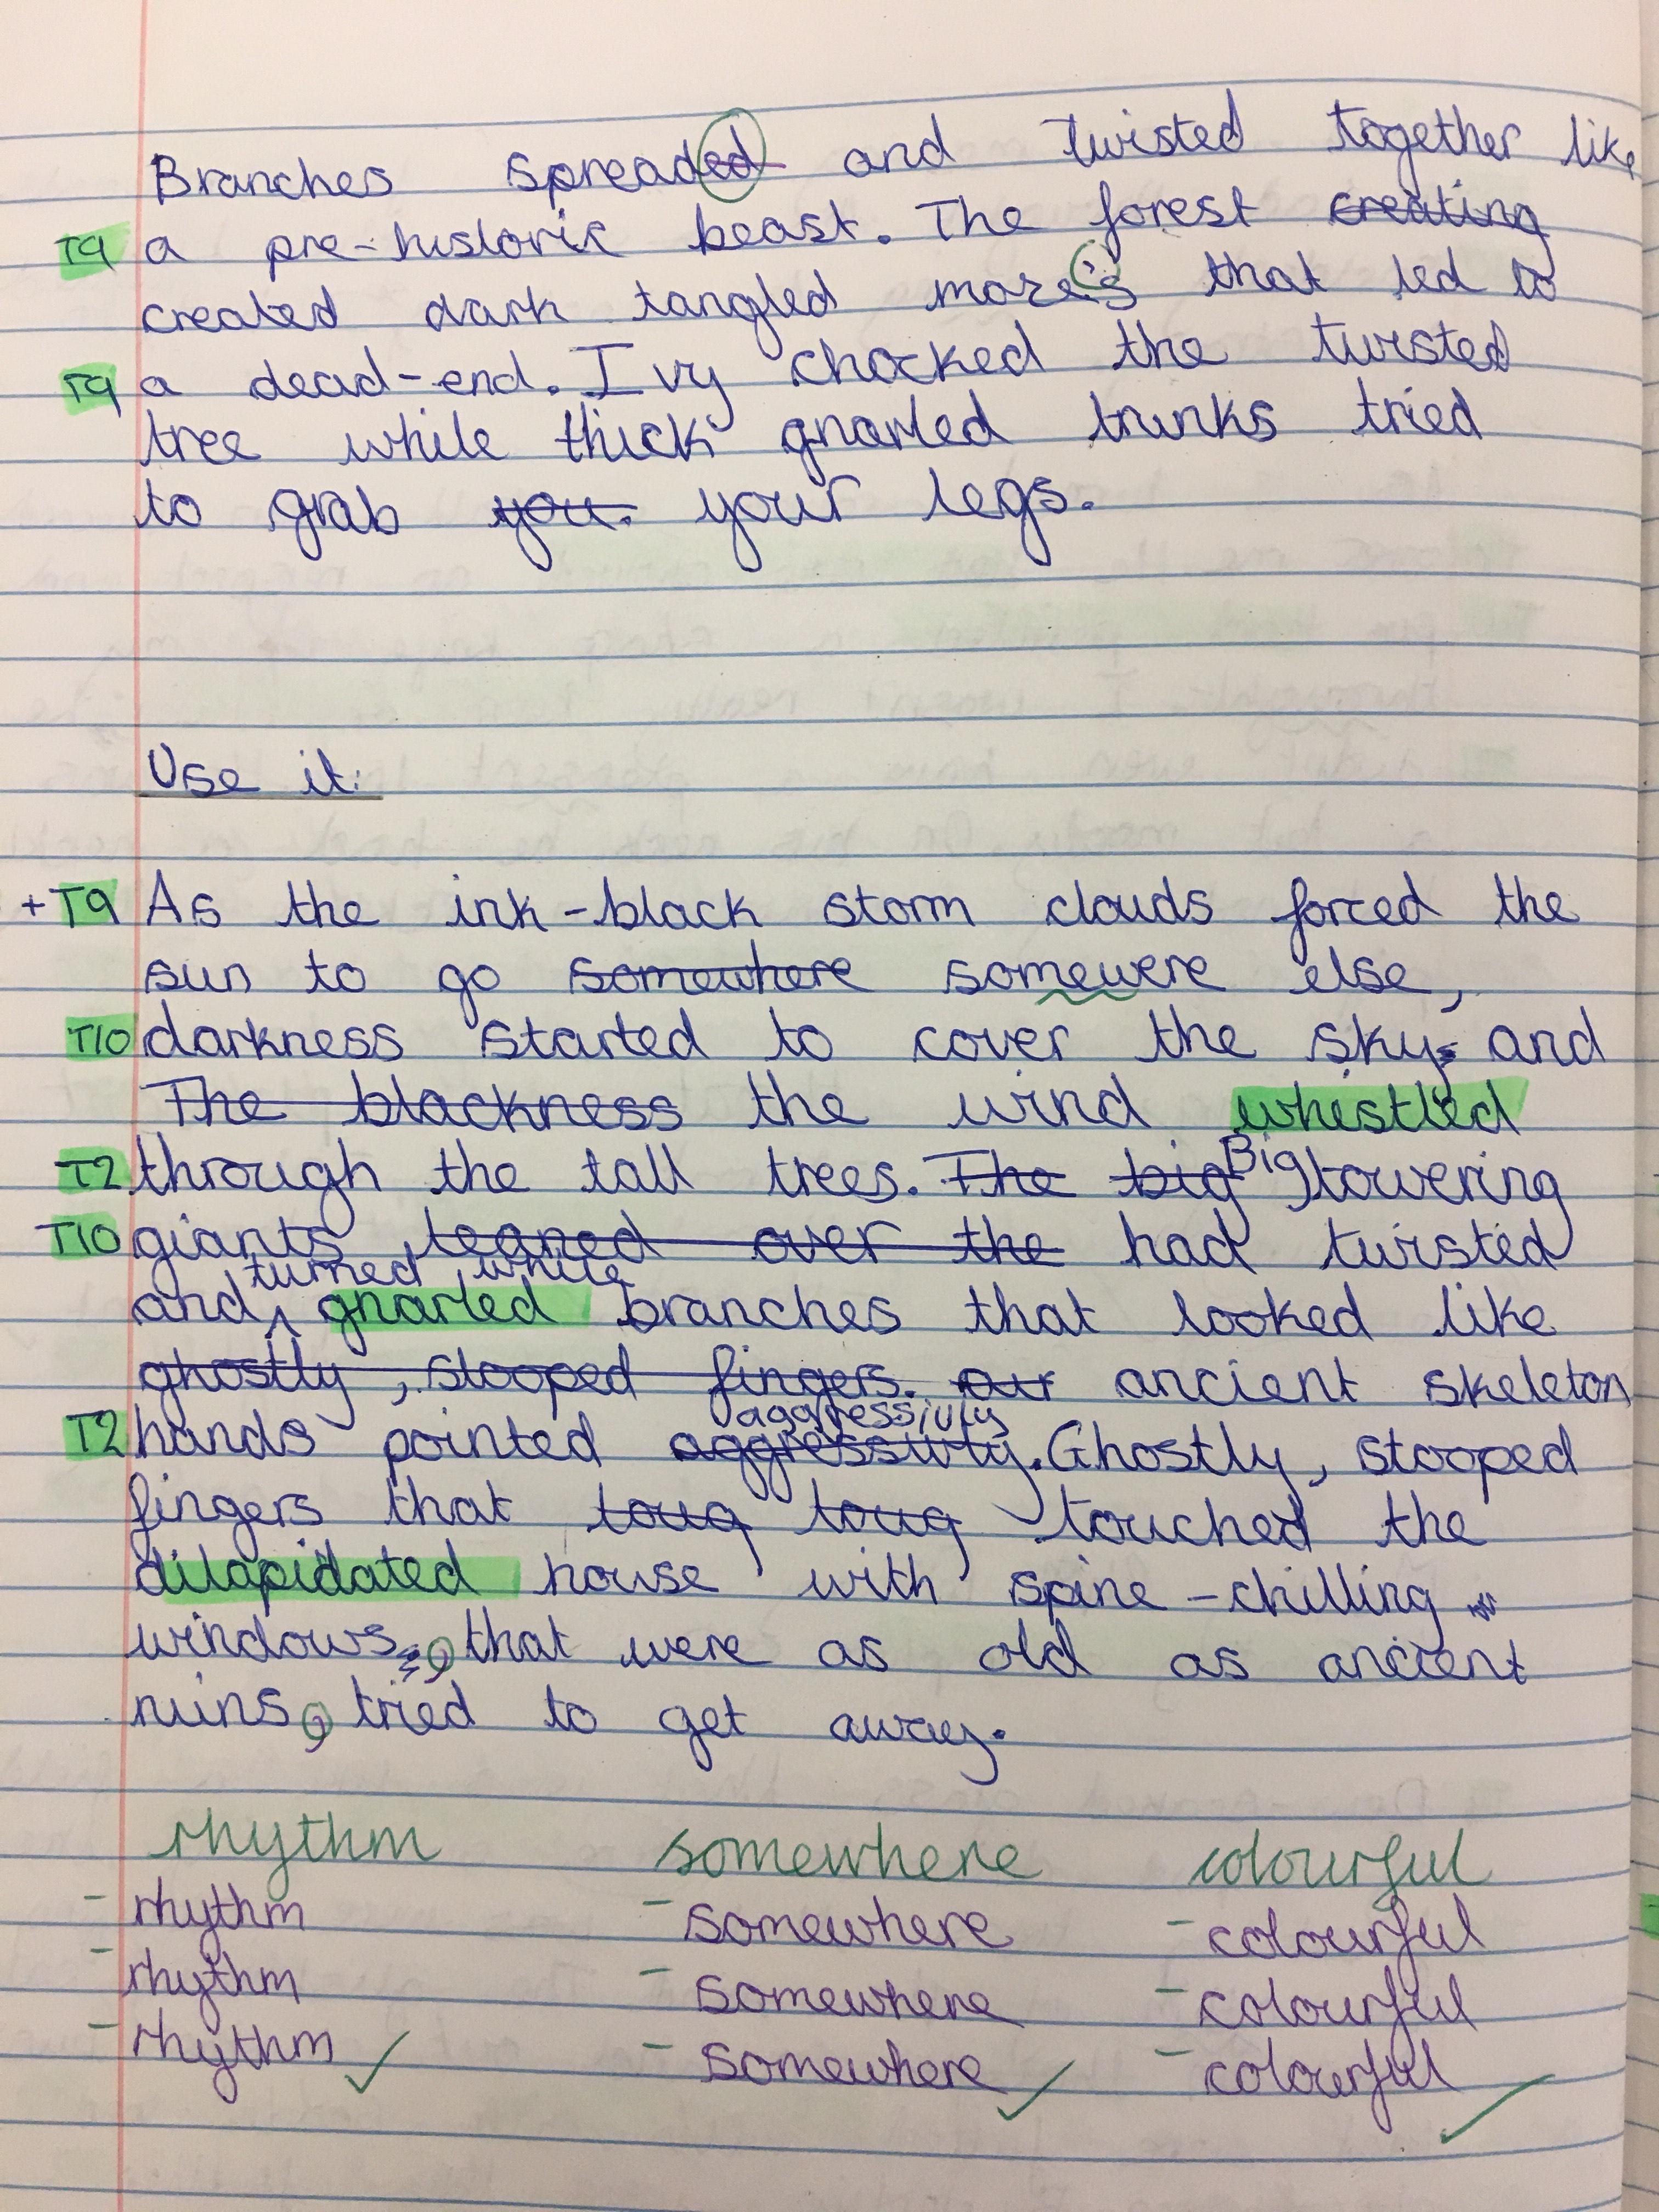 Branches spreaded and twisted together like
T9 a pre-historic beast. The forest creating
created dark tangled maze's that led to
T9 a dead-end. Ivy chocked the twisted
tree while thick gnarled trunks tried
to grab you. your legs.
Use it:
+T9 As the ink-black storm clouds forced the
sun to go somewhere somewere else,
T10 darkness started to cover the sky and
The blackness the wind whistled
T2 through the tall trees. The big Big, towering
T10 giants, leaned over the had twisted
turned white
and gnarled branches that looked like
ghostly, stooped fingers. our ancient skeleton
aggressivly
T2 hands pointed aggressivly. Ghostly, stooped
fingers that toug toug touched the
dilapidated house with spine-chilling
windows, that were as old as ancient
ruins, tried to get away.
rhythm somewhere colourful
- rhythm - somewhere - colourful
- rhythm - somewhere - colourful
- rhythm ✓ - somewhere ✓ - colourful ✓